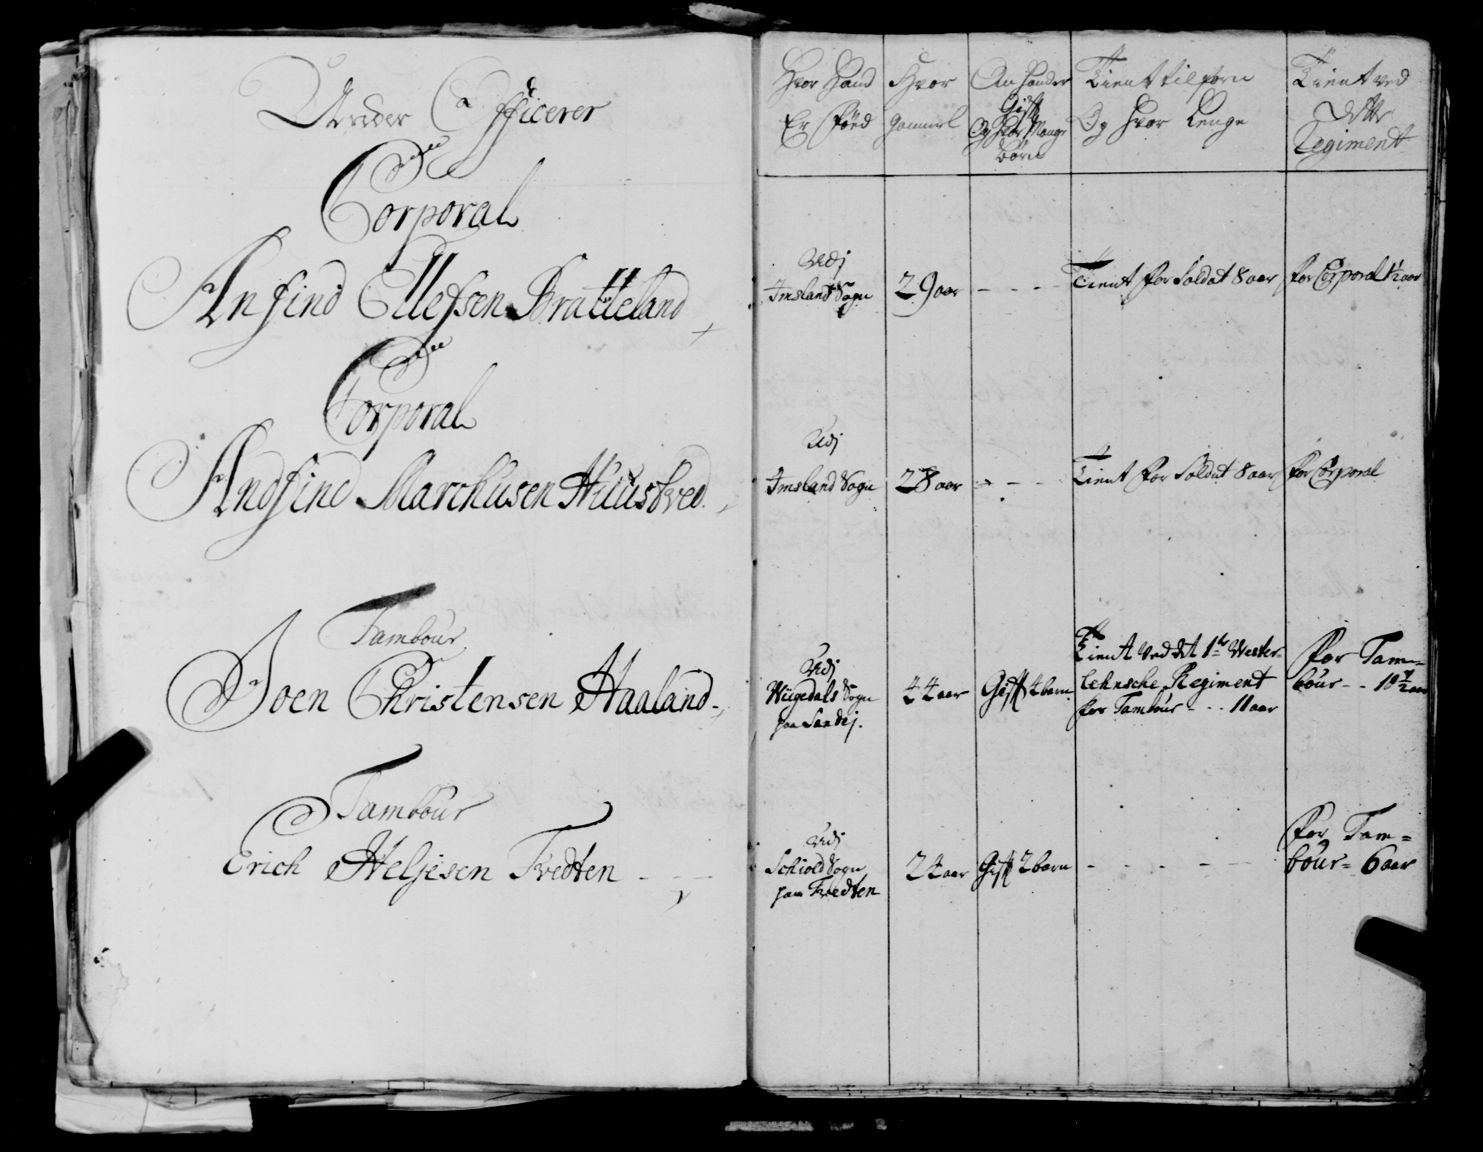 Under Officerer
Corporal
Ansind Ellefsen Bratteland
Corporal
Andsind Marchusen Hiustved
Tambour
Joen Christensen Haaland
Tambour
Erich Heljesen Tvedten
Hvor Hand
Er Föed
Hvor
Gammel
Om Hand er
Gift
Og Hvor Mange
Börn
Tient tilforn
Og Hvor Lenge
Tient ved
Dette
Regiment
Udj
Imsland Sogn
29 aar
Tient for Soldat 8 aar
for Corporal ½ aar
Udj
Imsland Sogn
28 aar
Tient for Soldat 8 aar
for Corporal
Udj
Wigedals Sogn
paa Sandej.
44 aar
Gift 4 barn
Tient ved det 1te Wester-
lehnsche Regiment
for Tambour - - - 11 aar
For Tam-
bour - - 10½ aar
Udj
Schiold Sogn
paa Tvedten
24 aar
Gift 2 barn
For Tam=
bour = 6 aar